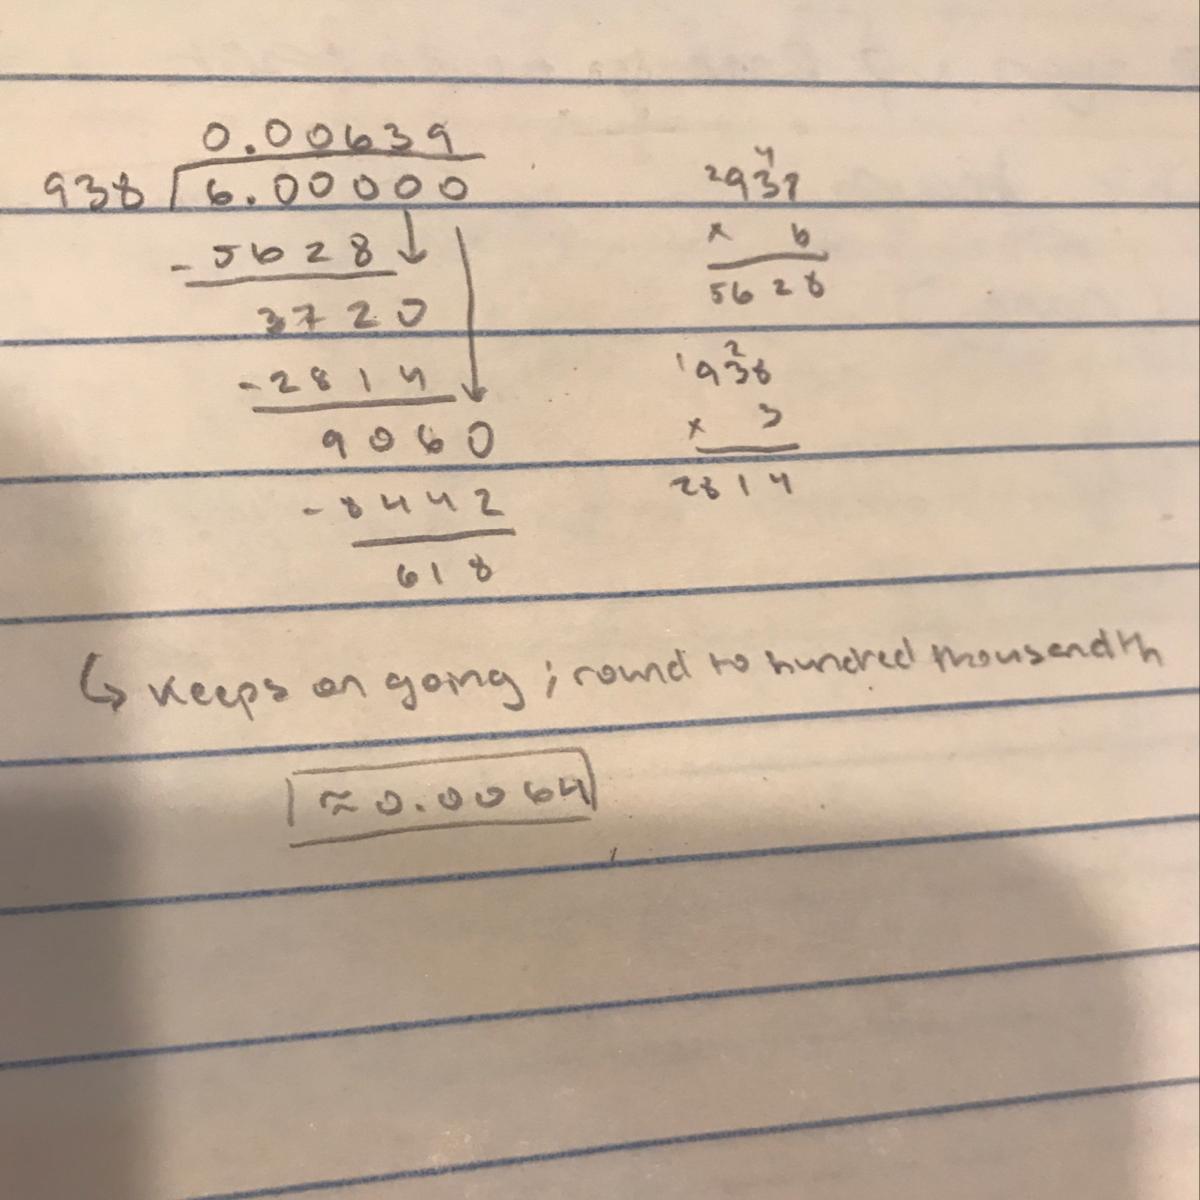 0.00639
938 6.00000
- 5628
3720
- 2814
9060
- 8442
618
2 4
938
x 6
5628
1 2
938
x 3
2814
↳ keeps on going ; round to hundred thousandth
≈ 0.0064